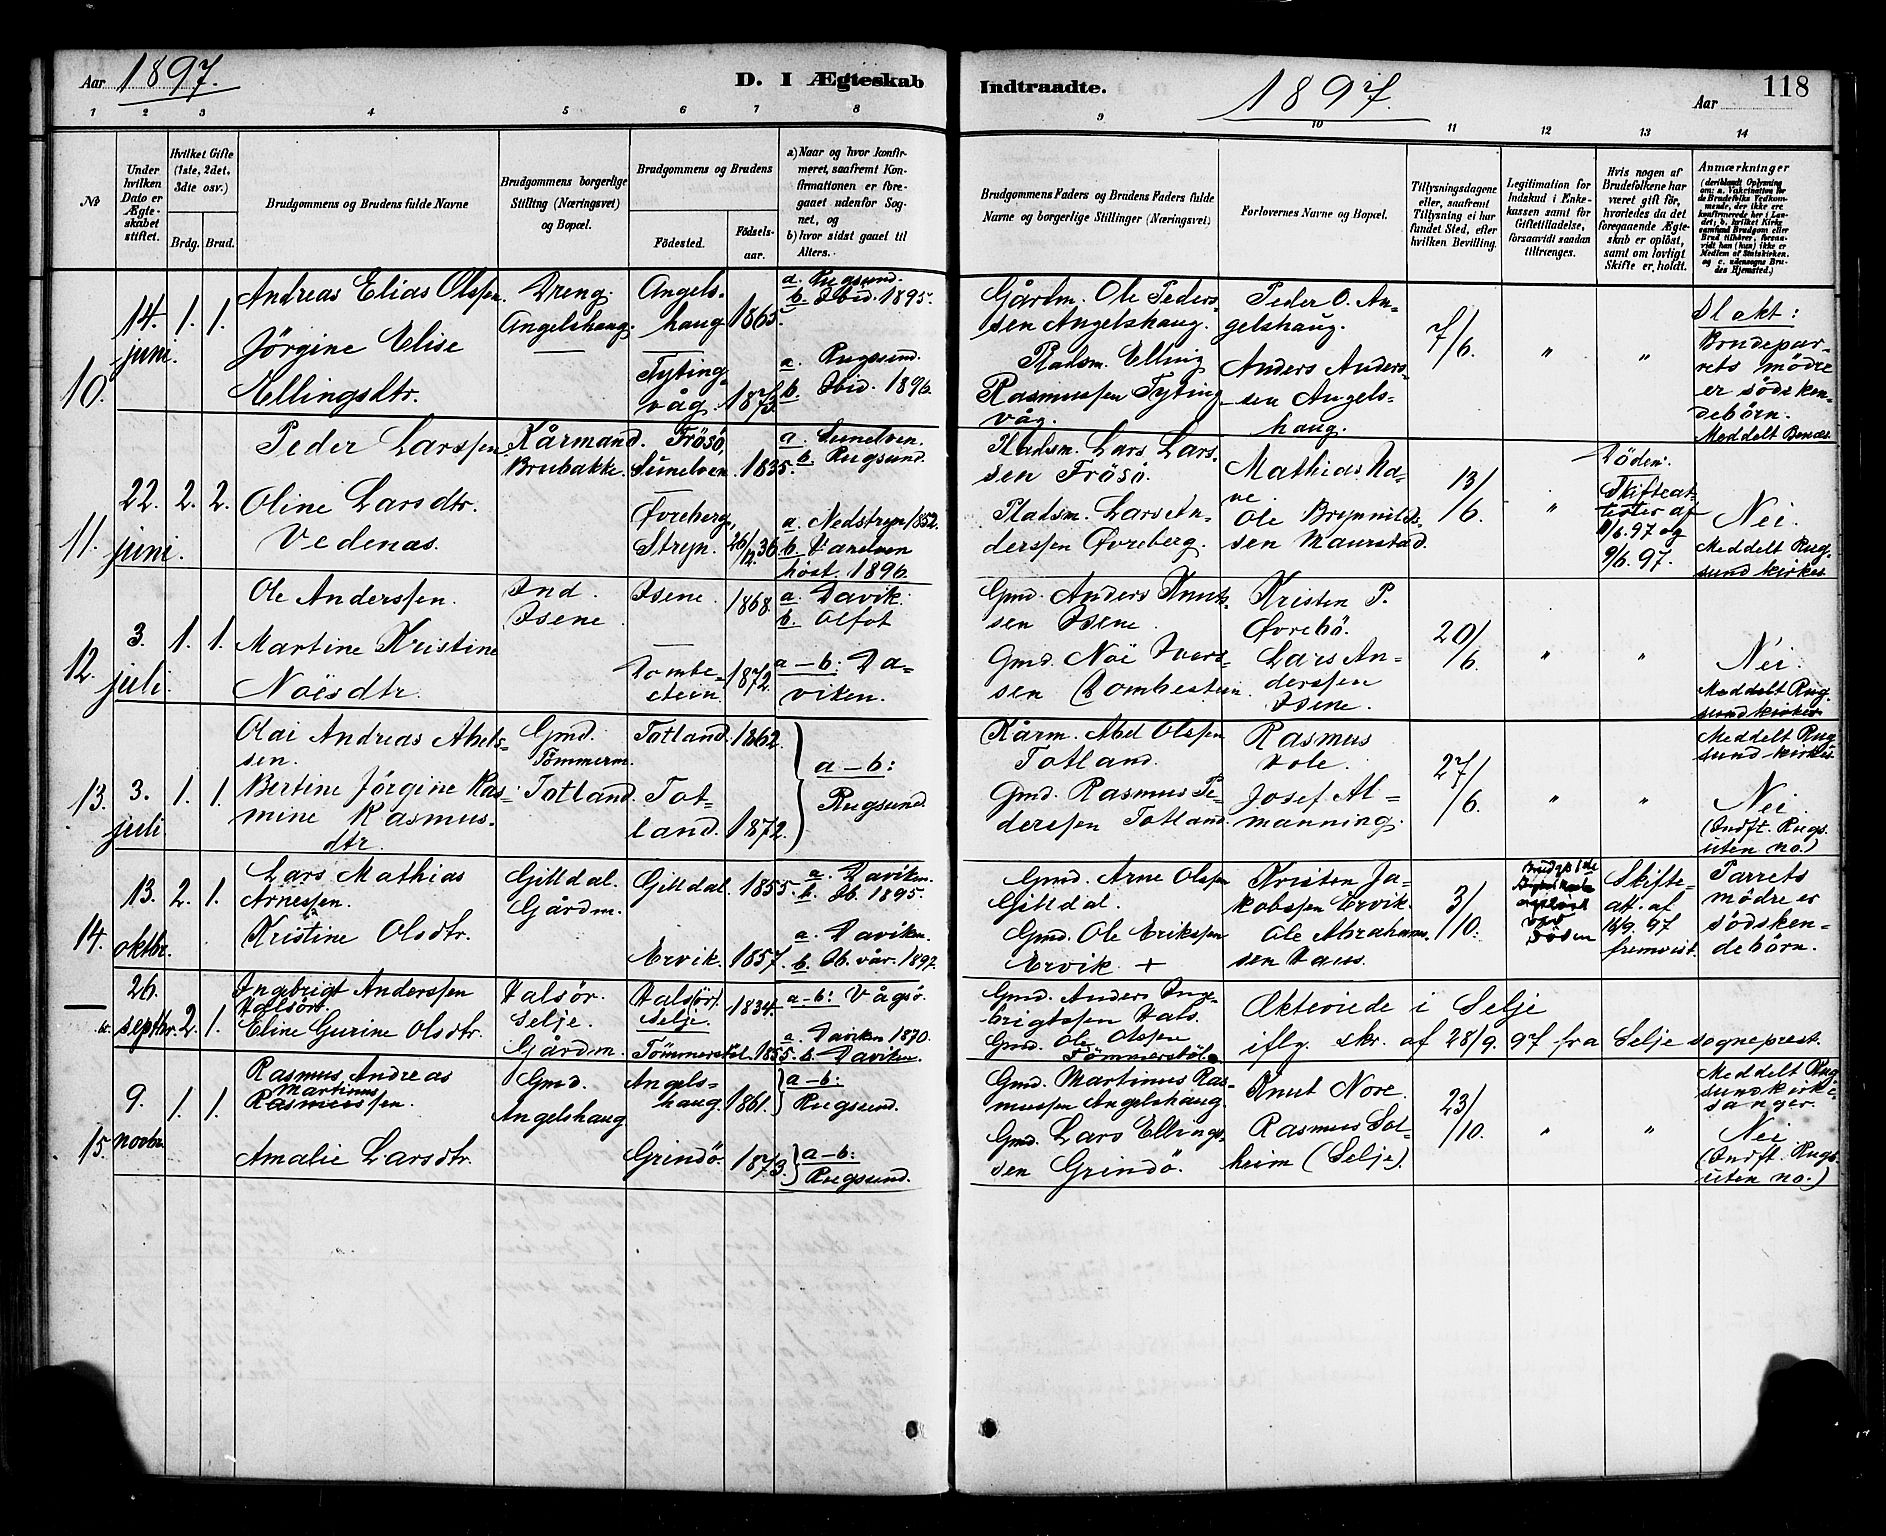 Aar 1897.
D. I Ægteskab
Indtraadte.
1897.
Aar
118
1 2 3 4 5 6 7 8
9 10 11 12 13 14
No
Under hvilken Dato er Ægteskabet stiftet.
Hvilket Gifte (1ste, 2det, 3die osv.)
Brdg. Brud.
Brudgommens og Brudens fulde Navne
Brudgommens borgerlige Stilling (Næringsvei) og Bopæl.
Brudgommens og Brudens
Fødested.
Fødselsaar.
a) Naar og hvor konfirmeret, saafremt Konfirmationen er foregaaet udenfor Sognet, og
b) hvor sidst gaaet til Alters.
Brudgommens Faders og Brudens Faders fulde Navne og borgerlige Stillinger (Næringsvei)
Forlovernes Navne og Bopæl.
Tillysningsdagene eller, saafremt Tillysning ei har fundet Sted, efter hvilken Bevilling.
Legitimation for Indskud i Enkekassen samt for Giftetilladelse, forsaavidt saadan tiltrænges.
Hvis nogen af Brudefolkene har været gift før, hvorledes da det foregaaende Ægteskab er opløst, samt om lovligt Skifte er holdt.
Anmærkninger
10.
14. juni.
1. 1.
Andreas Elias Olssen.
Jørgine Elise
Ellingsdtr.
Dreng.
Angelshaug.
Angelshaug
1865.
a. Rugsund.
b. Ibid. 1895.
Tytingvåg.
1873.
a. Rugsund.
b. Ibid. 1896.
Gårdm. Ole Pedersen Angelshaug.
Pladsm. Elling
Rasmussen Tytingvåg.
Peder O. Angelshaug.
Anders Anderssen Angelshaug.
7/6.
" "
Slekt:
Brudeparrets mödre er södskendebörn.
Meddelt
11.
22. juni.
2. 2.
Peder Larssen
Oline Larsdtr.
Vedenas.
Kårmand.
Brubakke.
Frösö,
Sunelven.
1835.
a. Sunelven.
b. Rugsund.
Øvreberg,
Stryn.
26/12.36
a. Nedstryn 1852.
b. Vanelven
høst 1896.
Pladsm. Lars Larssen Frösö.
Pladsm. Lars Anderssen Øvreberg.
Mathias Nave.
Ole Brynnildssen Maurstad.
13/6
"
Døden.
Skifteattester af
11/6.97 og
9/6.97.
Nei.
Meddelt Rugsund kirkes.
12.
3. juli.
1. 1.
Ole Anderssen.
Martine Kristine
Noësdtr.
Ind.
Isene.
Isene.
1868.
a. Davik.
b. Olfot
Dombestein.
1872.
a-b: Daviken.
Gmd. Anders Knutsen Isene.
Gmd. Noë Iverssen Dombestein.
Kristen P.
Øvrebö.
Lars Anderssen
Isene.
20/6
" "
Nei.
Meddelt Rugsund kirkes
13.
3. juli
1. 1.
Olai Andreas Abelssen.
Bertine Jörgine Rasmine Rasmusdtr.
Gmd.
Tømmerm.
Totland.
Totland.
1862.
Totland.
1872.
a-b:
Rugsund.
Kårm. Abel Olssen
Totland.
Gmd. Rasmus Pederssen Totland.
Rasmus
Hole.
Josef Almanning.
27/6
" "
Meddelt Rugsund kirkes.
Nei
(Indft. Rugs. uten no.)
14.
13. oktbr.
2. 1.
Lars Mathias
Arnessen.
Kristine Olsdtr.
Gilldal.
Gårdm.
Gilldal.
1855.
a. Daviken.
b. Ib. 1895.
Ervik.
1857.
a. Daviken.
b. Ib. vår. 1897.
Gmd. Arne Olssen
Gilldal.
Gmd. Ole Erikssen
Ervik +
Kristen Jakobssen Ervik.
Ole Abrahamsen Haus.
3/10.
Døden
Skifteatt. af
16/9.97
fremvist.
Parrets mödre er södskendebörn.
26. septbr.
2. 1.
Ingebrigt Anderssen
Halsör.
Eline Gurine Olsdtr.
Halsör.
Selje.
Gårdm.
Halsör,
Selje.
1834.
a-b: Vågsö.
Tömmerstøl.
1855.
a. Daviken 1870.
b. Daviken.
Gmd. Anders Ingebrigtssen Hals.
Gmd. Ole Olssen
Tömmerstøl.
Ekteviede i Selje
iflg. skr. af 28/9.97 fra Selje sogneprest.
15.
9. novbr.
1. 1.
Rasmus Andreas
Martinus
Rasmussen.
Amalie Larsdtr.
Gmd.
Angelshaug
Angelshaug
1861.
a-b:
Rugsund.
Grindö.
1873.
a-b:
Rugsund.
Gmd. Martinus Rasmussen Angelshaug.
Gmd. Lars Ellingssen Grindö.
Knut Nore.
Rasmus Solheim (Selje).
23/10.
" "
Meddelt Rugsund kirkesanger.
Nei
(Indft. Rugs. uten no.)